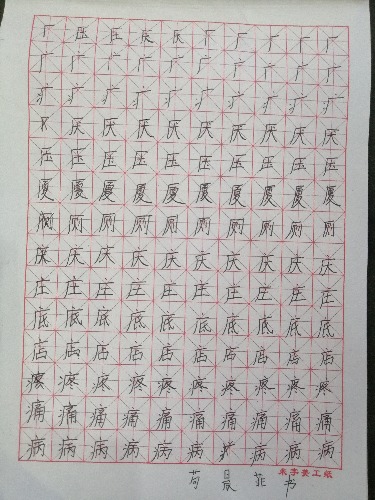 厂压压庆庆厂厂厂厂厂
广广广广广广广广广广
疒疒疒疒疒疒疒疒疒疒
厌厌厌厌厌厌厌厌厌
压压压压压压压压压压
厦厦厦厦厦厦厦厦厦厦
厕厕厕厕厕厕厕厕厕厕
庆庆庆庆庆庆庆庆庆庆
庄庄庄庄庄庄庄庄庄庄
底底底底底底底底底底
店店店店店店店店店店
疼疼疼疼疼疼疼疼疼疼
痛痛痛痛痛痛痛痛痛痛
病病病病病病疒病病病
米字姜工纸
苟晨菲书